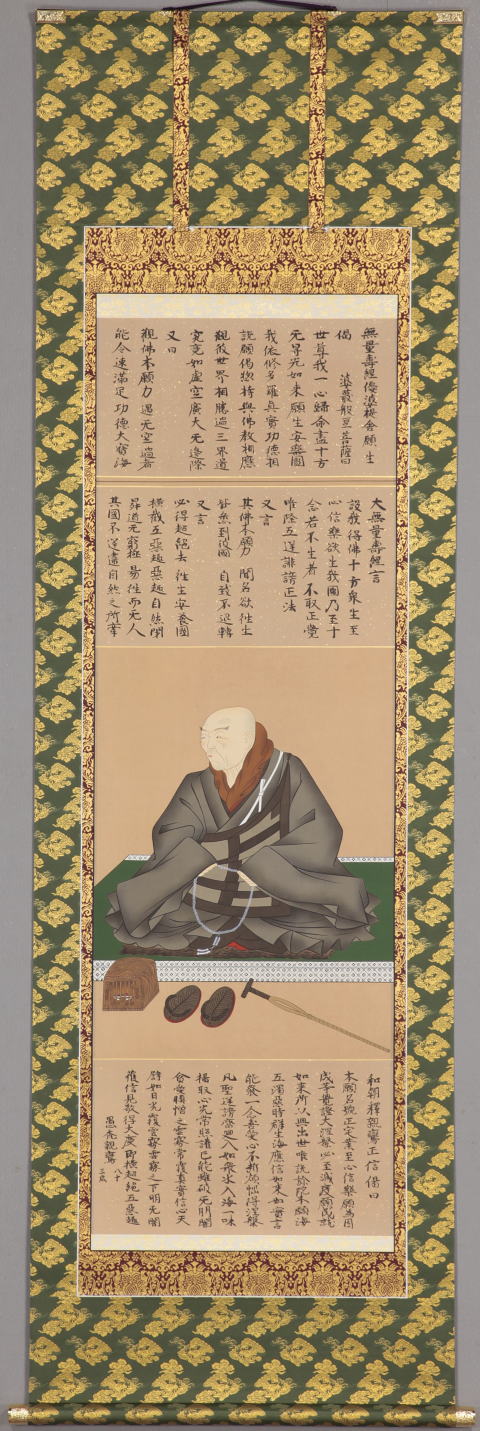 無量壽經優婆提舍願生
偈　婆藪般豆菩薩曰
世尊我一心歸命盡十方
无㝵光如來願生安樂國
我依修多羅真實功德相
說願偈惣持與佛教相應
觀彼世界相勝過三界道
究竟如虛空廣大无邊際
又曰
觀佛本願力　遇无空過者
能令速滿足　功德大寶海
大無量壽經言
設我得佛十方衆生至
心信樂欲生我國乃至十
念若不生者不取正覺
唯除五逆誹謗正法
又言
其佛本願力　聞名欲往生
皆悉到彼國　自致不退轉
又言
必得超絕去往生安養國
橫截五惡趣惡趣自然閇
昇道无窮極易往而无人
其國不逆違自然之所牽
和朝釋親鸞正信偈曰
本願名號正定業至心信樂願爲因
成等覺證大涅槃必至滅度願成就
如來所以興出世唯說彌陀本願海
五濁惡時群生海應信如來如實言
能發一念喜愛心不斷煩惱得涅槃
凡聖逆謗齊迴入如衆水入海一味
攝取心光常照護已能雖破无明闇
貪愛瞋憎之雲霧常覆真實信心天
譬如日光覆雲霧雲霧之下明无闇
獲信見敬得大慶即橫超絕五惡趣
愚禿親鸞 八十三歲